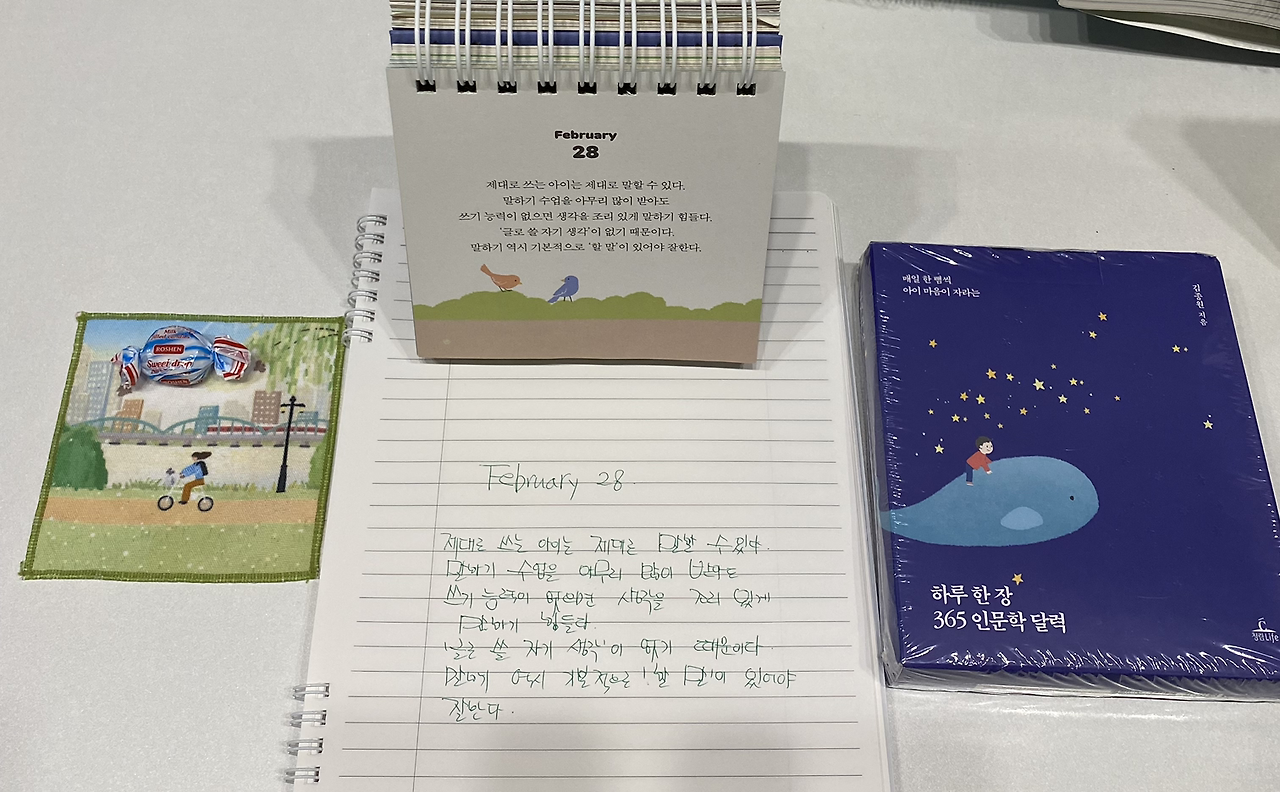 February
28
제대로 쓰는 아이는 제대로 말할 수 있다.
말하기 수업을 아무리 많이 받아도
쓰기 능력이 없으면 생각을 조리 있게 말하기 힘들다.
'글로 쓸 자기 생각'이 없기 때문이다.
말하기 역시 기본적으로 '할 말'이 있어야 잘한다.
Milk
ROSHEN
Sweet drop
ROSHEN
February 28.
제대로 쓰는 아이는 제대로 말할 수 있다.
말하기 수업을 아무리 많이 받아도
쓰기 능력이 없으면 생각을 조리 있게
말하기 힘들다.
'글로 쓸 자기 생각'이 없기 때문이다.
말하기 역시 기본적으로 '할 말'이 있어야
잘한다.
매일 한 뼘씩
아이 마음이 자라는
김종원 지음
하루 한 장
365 인문학 달력
청림Life